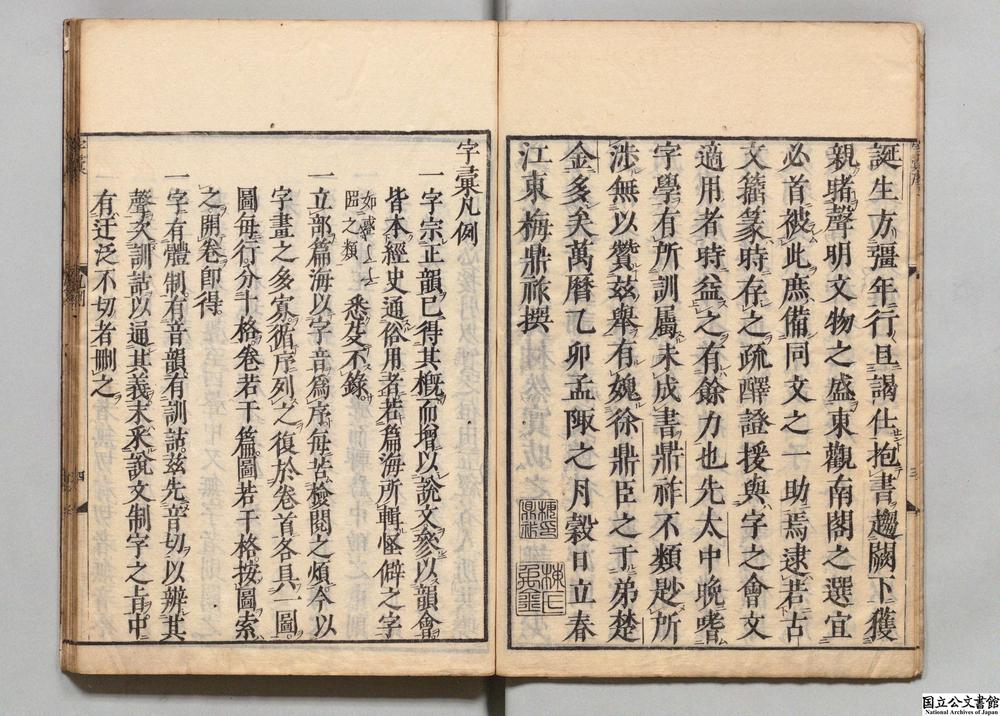 誕生方彊年行且謁仕抱書趨闕下獲
親睹聲明文物之盛東觀南閣之選宜
必首被此庶備同文之一助焉逮若古
文籒篆時存之疏醳證援與字之會文
適用者時益之有餘力也先太中晩嗜
字學有所訓屬未成書鼎祚不類尟所
洙無以贊兹舉有媿徐鼎臣之于弟楚
金多矣萬曆乙卯孟陬之月榖日立春
江東梅鼎祚撰
字彙凡例
一字宗正韻已得其概而增以說文參以韻會
皆本經史通俗用者若篇海所輯怪僻之字
㘞之類
悉芟不錄
一立部篇海以字音爲序每苦檢閱之煩今以
字畫之多寡循序列之復於卷首各具一圖
圖每行分十格卷若干篇圖若干格按圖索
之開卷卽得
一字有體制有音韻有訓詁兹先音切以辨其
聲次訓詁以通其義末采說文制字之旨中
有迂泛不切者刪之
三
四
国立公文書館
National Archives of Japan